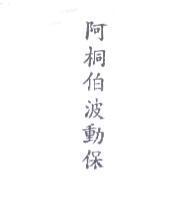 阿桐伯波動保